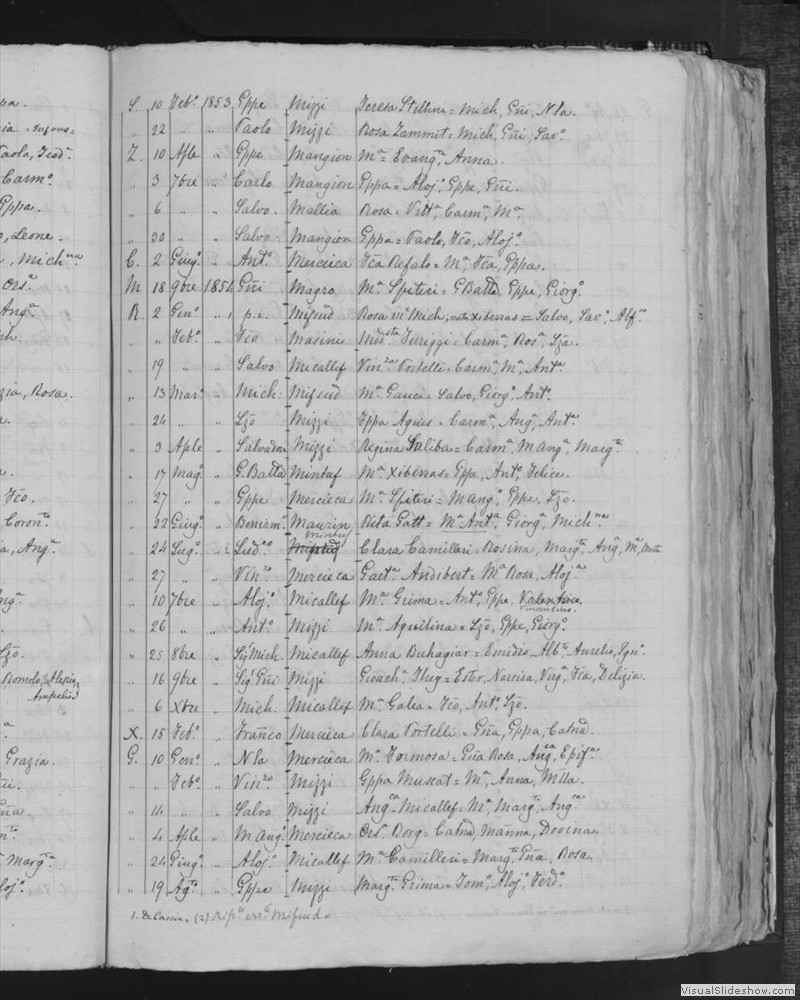 pa.
ia
Paolo, Teod.
Carmo.
Gppa.
o, Leone.
, Mich.na
Ors.a
Ang.a
ch.
zia, Rosa.
a.
Fco.
Coron.ta
ia, Ang.a
org.a
Lzo.
Romolo, Alessio,
Ampelio
a
Grazia.
Marg.ta
Aloj.o
S. 10 Feb.o 1853 Gppe Mizzi Teresa Stellini = Mich, Gni, Nla.
" 22 " " Paolo Mizzi Rosa Zammit = Mich, Gni, Sav.o
Z. 10 Aple " Gppe Mangion M.a = Evang.ta, Anna.
" 3 7bre " Carlo Mangion Gppa = Aloj.o, Gppe, Gni.
" 6 " " Salvo. Mallia Rosa = Vitt.a Carm.a, M.a
" 30 " " Salvo Mangion Gppa = Paolo, Fco, Aloj.o
C. 2 Giug.o " Ant.o Mercieca Fca Refalo = M.a, Fca, Gppa.
M. 18 9bre 1854 Gni Magro M.a Spiteri = GBatta, Gppe, Giorg.o
R. 2 Gen.o " 1 p.i. Mifsud Rosa m.o Mich, nata Xiberras = Salvo, Sav.o, Alf.a
" " Feb.o " Fco Masini Mod.sta Turiggi = Carm.a, Ros.a, Lza.
" 19 " " Salvo Micallef Vin.za Portelli = Carm.a, M.a, Ant.a
" 13 Mar.o " Mich. Mifsud M.a Gauci = Salvo, Giorg.o, Ant.o
" 24 " " Lzo Mizzi Gppa Agius = Carm.a, Ang.a, Ant.a
" 3 Aple " Salvadore Mizzi Regina Saliba = Carm.a, M Ang.a, Marg.ta
" 17 Mag.o " G.Batta Mintuf M.a Xiberras = Gppe, Ant.o, Felice.
" 27 " " Gppe Mercieca M.a Spiteri = M Ang.o, Gppe, Lzo.
" 22 Giug.o " Beniam.o Maurin Rita Gatt = M.a Ant.a, Giorg.a, Mich.na
Mintuf
" 24 Lug.o " 2 Lud.co Clara Camilleri = Rosina, Marg.ta, Ang.a, M.a,
" 27 " " Vin.zo Mercieca Gaet.a Audibert = M.a Rosa, Aloj.a
" 10 7bre " Aloj.o Micallef M.a Grima = Ant.o, Gppe, Valentino
Vincenzino.
" 26 " " Ant.o Mizzi M.a Aquilina = Lzo, Gppe, Giorg.o
" 25 8bre " Sig.r Mich. Micallef Anna Buhagiar = Emidio, Alb.to, Aurelio, Ign.o
" 16 9bre " Sig.r Gni Mizzi Gioach.a = Ester, Narcisa, Virg.a, Fca, Delizia.
" 6 Xbre " Mich. Micallef M.a Galea = Fco, Ant.o, Lzo.
X. 15 Feb.o " Franco Mercieca Clara Portelli = Gna, Gppa, Catna.
G. 10 Gen.o " Nla Mercieca M.a Formosa = Gna Rosa, Ang.ca, Epif.a
" " Feb.o " Vin.zo Mizzi Gppa Muscat = M.a, Anna, Mlla.
" 14 " " Salvo Mizzi Ang.ca Micallef = M.a, Marg.ta, Ang.ca
" 4 Aple " M Ang.o Mercieca Ors.a Borg = Catna, Manna, Dovina.
" 24 Giug.o " Aloj.o Micallef M.a Camilleri = Marg.ta, Gna, Rosa.
" 19 Ag.to " Gppe Mizzi Marg.ta Grima = Tom.o, Aloj.o, Ferd.o
1. DeCassia. (2) Mifsud.
VisualSlideshow.com